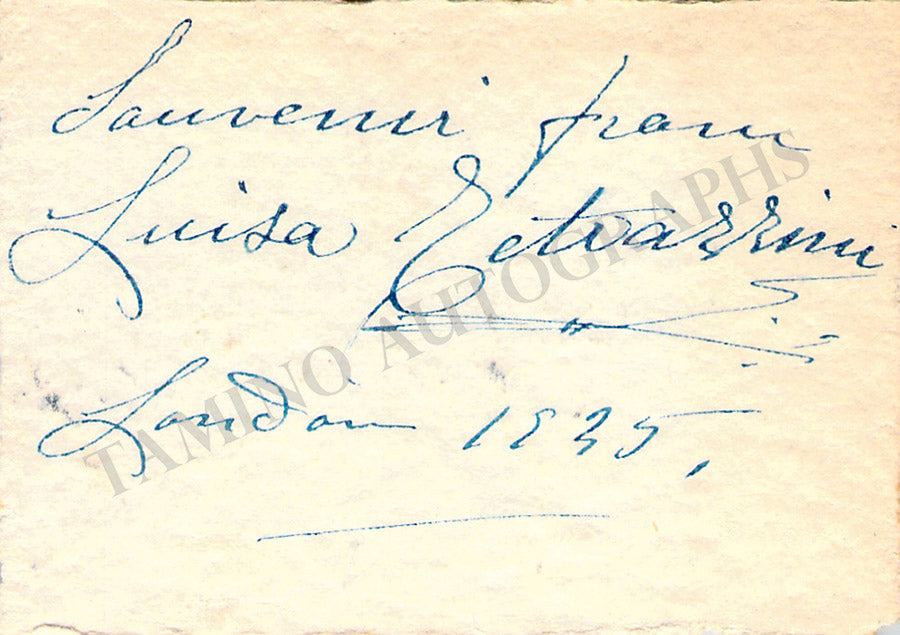 Souvenir from
Luisa Tetrazzini
London 1935,
TAMINO AUTOGRAPHS